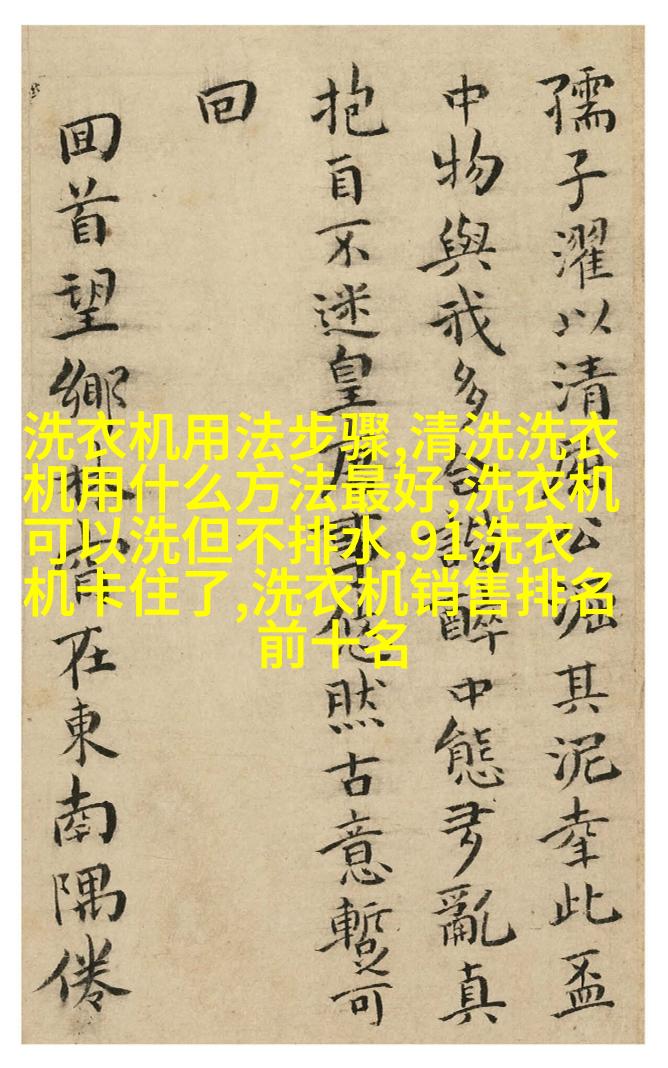 孺子濯以清公掘其泥此盃
中物與我多合醉中態亂真
抱自不迷皇事悠然古意暫可
回
回首望鄉林在東南隅倦
洗衣机用法步骤,清洗洗衣
机用什么方法最好,洗衣机
可以洗但不排水,91洗衣
机卡住了,洗衣机销售排名
前十名